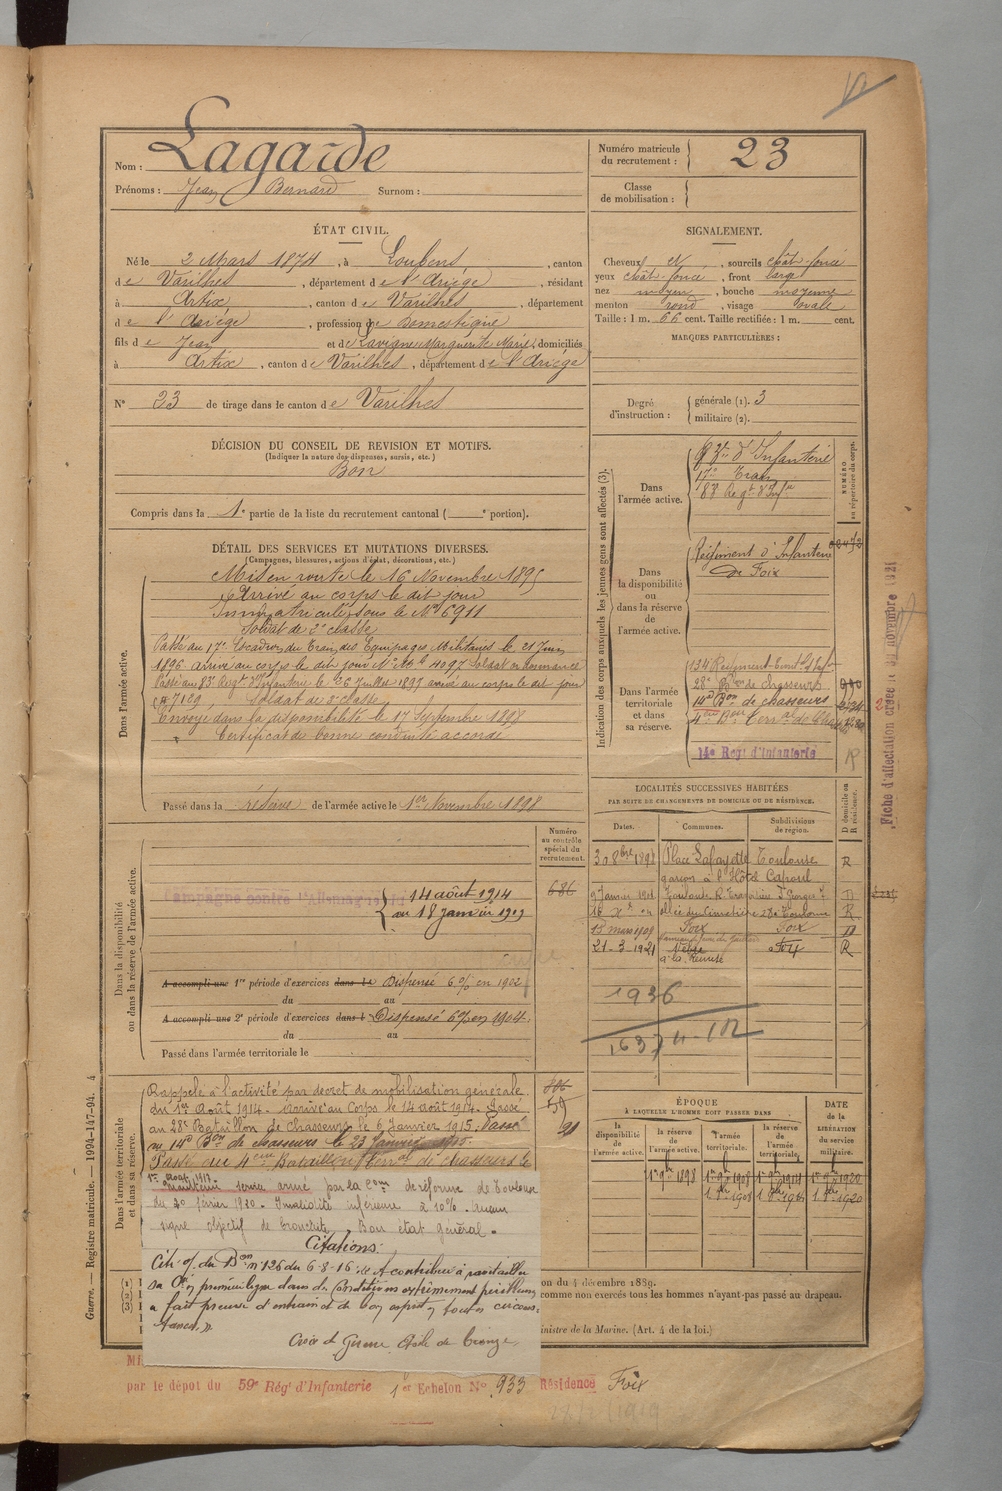 Nom : Lagarde
Prénoms : Jean Bernard Surnom :
Numéro matricule du recrutement : 23
Classe de mobilisation :
ÉTAT CIVIL.
Né le 2 Mars 1874, à Loubens, canton
de Varilhes, département de l'Ariège, résidant
à Artix, canton de Varilhes, département
de l'Ariège, profession de Domestique
fils de Jean et de Lavigne Marguerite Marie, domiciliés
à Artix, canton de Varilhes, département de l'Ariège
N° 23 de tirage dans le canton de Varilhes
DÉCISION DU CONSEIL DE REVISION ET MOTIFS.
(Indiquer la nature des dispenses, sursis, etc.)
Bon
Compris dans la 1e partie de la liste du recrutement cantonal ( e portion).
SIGNALEMENT.
Cheveux et, sourcils chât-foncé
yeux chât-foncé, front large
nez moyen, bouche moyenne
menton rond, visage ovale
Taille : 1 m. 66 cent. Taille rectifiée : 1 m. cent.
MARQUES PARTICULIÈRES :
Degré d'instruction : générale (1). 3
militaire (2).
DÉTAIL DES SERVICES ET MUTATIONS DIVERSES.
(Campagnes, blessures, actions d'éclat, décorations, etc.)
Dans l'armée active.
Mis en route le 16 Novembre 1895
Arrivé au corps le dit jour
Immatriculé sous le N° 6911
Soldat de 2e classe
Passé au 17e Escadron du Train des Equipages Militaires le 21 Juin
1896 arrivé au corps le dit jour
Passé au 83e Régt d'Infanterie le 26 Juillet 1897 arrivé au corps le dit jour
7129, Soldat de 2e classe
Envoyé dans la disponibilité le 17 Septembre 1898
Certificat de bonne conduite accordé
Passé dans la réserve de l'armée active le 1er Novembre 1898
Indication des corps auxquels les jeunes gens sont affectés (3).
NUMÉRO au répertoire du corps.
Dans l'armée active.
d'Infanterie
17e Train
83e Régt d'Infie
Dans la disponibilité ou dans la réserve de l'armée active.
Régiment d'Infanterie
de Foix
Dans l'armée territoriale et dans sa réserve.
134 Régiment Territal d'Infie
28e Bon de chasseurs
14e Bon de chasseurs
4ème Bon Territal de Chas
14e Régt d'Infanterie
R
Fiche d'affectation créée le novembre 1921
Dans la disponibilité ou dans la réserve de l'armée active.
Numéro au contrôle spécial du recrutement.
Campagne contre l'Allemagne du { 14 août 1914
au 18 janvier 1919
686
A accompli une 1re période d'exercices dans le Dispensé 6% en 1902
du au
A accompli une 2e période d'exercices dans l Dispensé 6% en 1904.
du au
Passé dans l'armée territoriale le
LOCALITÉS SUCCESSIVES HABITÉES
PAR SUITE DE CHANGEMENTS DE DOMICILE OU DE RÉSIDENCE.
Dates. Communes. Subdivisions de région. D domicile ou R résidence.
30 8bre 1898 Place Lafayette Toulouse R
garçon à l'Hôtel Capoul
15 mars 1908 Foix Foix D
21-3-1921 Foix R
1936
Dans l'armée territoriale et dans sa réserve.
Rappelé à l'activité par décret de mobilisation générale
du 1er Août 1914. Arrivé au Corps le 14 août 1914. Passé
au 28e Bataillon de Chasseurs le 6 Janvier 1915. Passé
au 14e Bon de chasseurs le 23 Janvier 1915.
Passé au 4ème Bataillon Terral de chasseurs le
59
Maintenu service armé par la Com de réforme de Toulouse
du 20 février 1920. Invalidité inférieure à 10%. Aucun
signe objectif de bronchite. Bon état général.
Citations.
Cité o/ du Bon n° 126 du 6-8-16 : « A contribué à ravitailler
sa Cie en première ligne dans des conditions extrêmement périlleuses
a fait preuve d'entrain et de bon esprit en toutes circons-
tances. »
Croix de Guerre Etoile de bronze.
ÉPOQUE
À LAQUELLE L'HOMME DOIT PASSER DANS
la disponibilité de l'armée active. la réserve de l'armée active. l'armée territoriale. la réserve de l'armée territoriale.
DATE de la LIBÉRATION du service militaire.
1er 9bre 1898
on du 4 décembre 1889.
comme non exercés tous les hommes n'ayant pas passé au drapeau.
inistre de la Marine. (Art. 4 de la loi.)
par le dépôt du 59e Régt d'Infanterie 1er Echelon N° 933 Résidence Foix
Guerre. — Registre matricule. — 1994-147-94. 4